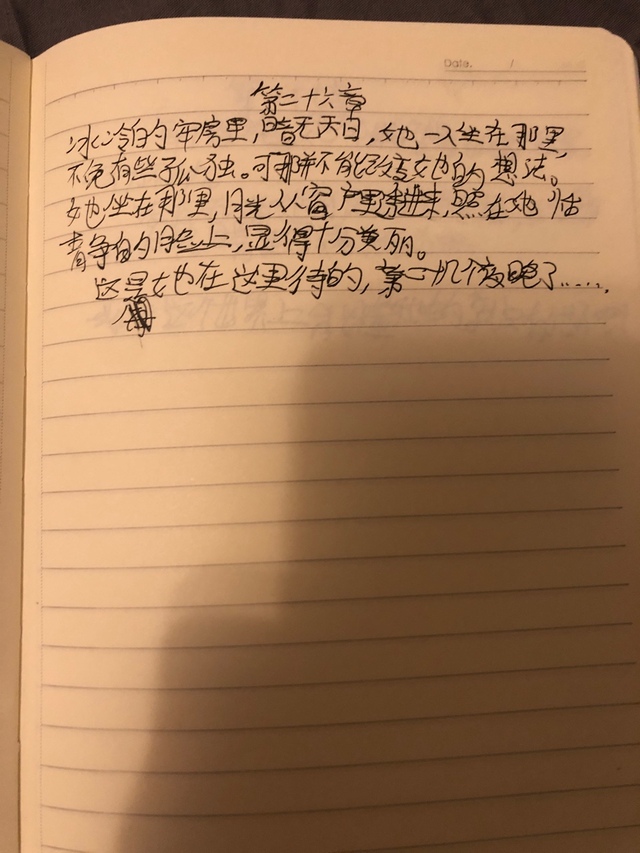 Date. /
第二十六章
冰冷的牢房里,暗无天日,她一人坐在那里,
不免有些孤独。可那并不能改变她的想法。
她坐在那里,月光从窗户里来,照在她恬
静的脸上,显得十分美丽。
这是她在这里待的,第一个夜晚了……